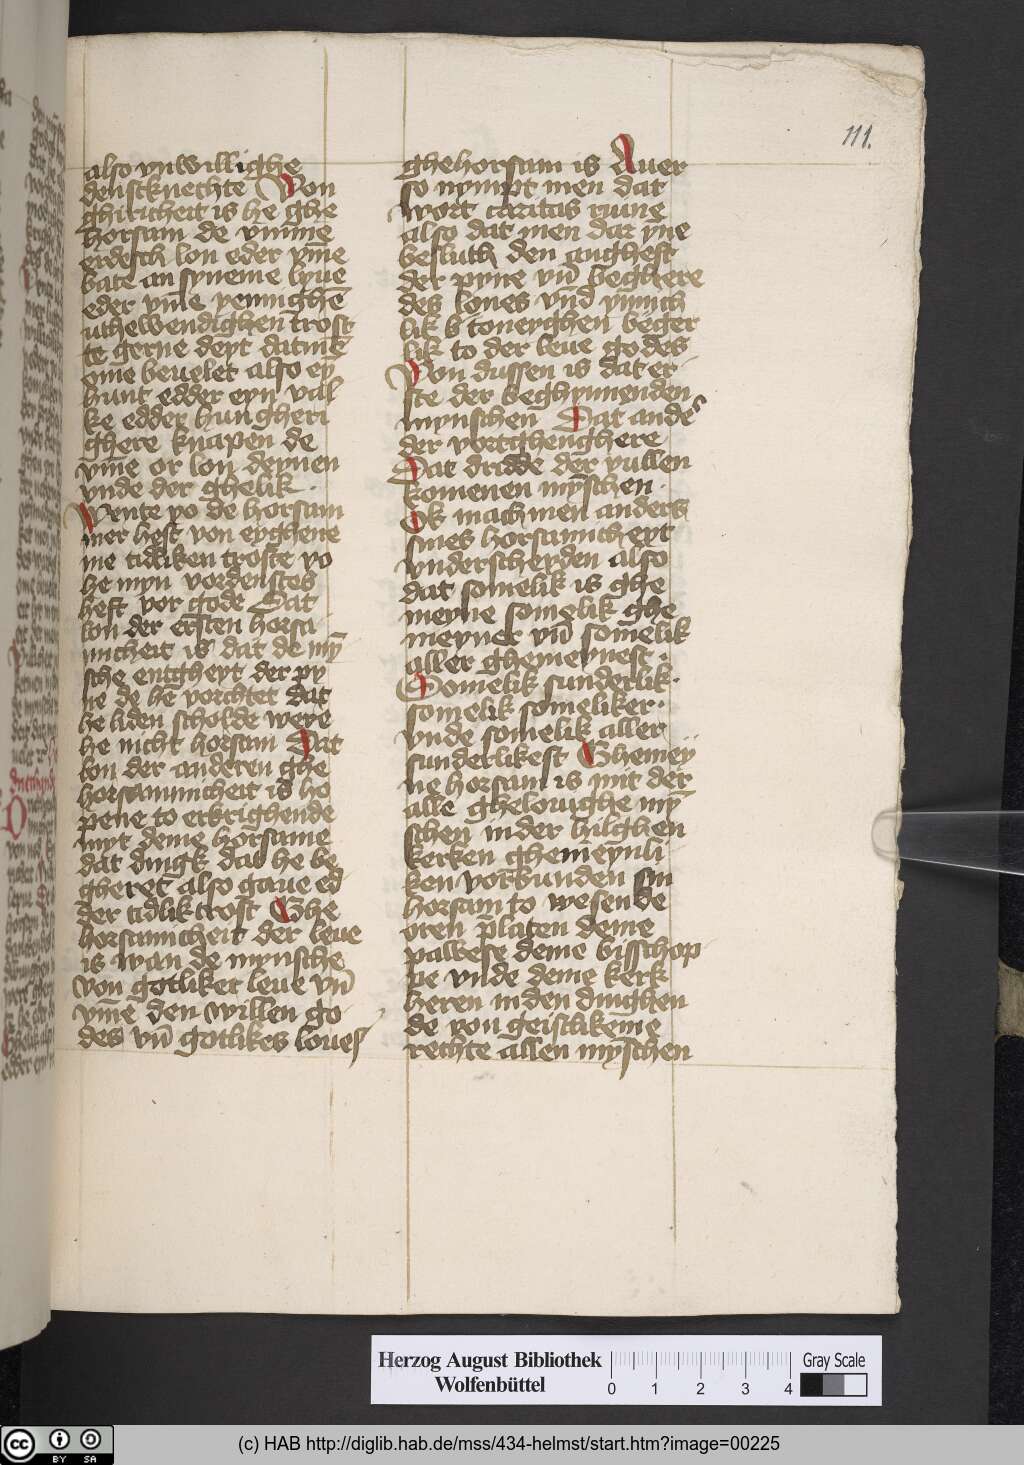 111.
also vnwillighe
denstknechte Von
ghiricheit is he ghe
horsam de vmme
erdesch lon eder vm̄e
bate an syneme lyue
eder vm̄e yennighē
uthewendighen trost
te gerne deyt datmē
ome beuelet also eȳ
hunt edder eyn val
ke edder hungheri
ghere knapen de
vm̄e or lon deynen
vnde der ghelik
Wente yo de horsam
mer heft von eyghene
me tidliken troste yo
he myn vordenstes
heft vor gode Dat
lon der ersten horsa
micheit is dat de mȳ
sche entgheyt der py
ne de he vorchtet dat
he liden scholde were
he nicht horsam Dat
lon der anderen ghe
horsammicheit is ho
pene to erkrighende
myt deme horsame
dat dingk das he be
gheret also gaue ed
der tidlik trost Ghe
horsamicheit der leue
is wan de mynsche
von gotliker leue vn̄
vm̄e den willen go
des vn̄ gotlikes loues
ghehorsam is Auer
so nympt men dat
wort caritas rume
also dat men dar yne
besluth den anghest
der pyne vn̄ begheere
des lones vn̄d ynnich
lik b toneyghen beger
lik to der leue godes
Von dussen is dat er
ste der beghynnenden
mynschen Dat ander
der vortghenghere
Dat dridde der vullen
komenen mȳschen
Ok mach men anders
sines horsamicheyt
vnderscheyden also
dat somelik is ghe
meyne somelik ghe
meyner vn̄ somelik
aller ghemeynest
Somelik sunderlik
somelik someliker
vnde somelik aller
sunderlikest Ghemeÿ
ne horsam is mit der
alle ghelouighe mȳ
schen in der hilghen
kerken ghemeynli
ken vorbunden sin
horsam to wesende
oren p̄laten deme
pawese deme bisschop
pe vnde deme kerk
heren in den dinghen
de von geistlikeme
rechte allen mȳschen
Herzog August Bibliothek
Wolfenbüttel
0 1 2 3 4
Gray Scale
cc BY SA
(c) HAB http://diglib.hab.de/mss/434-helmst/start.htm?image=00225